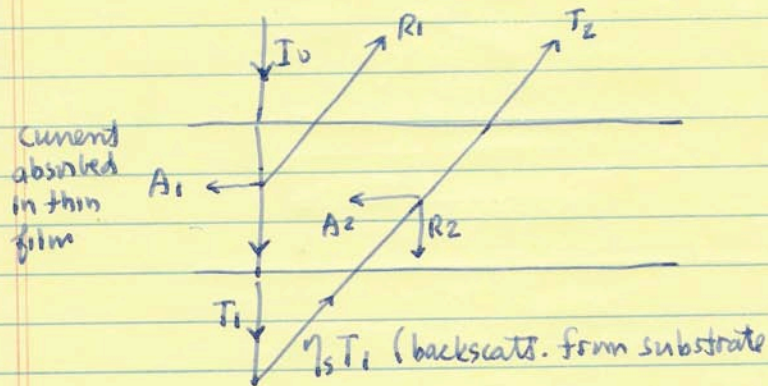 I₀
R₁
T₂
Current
absorbed
in thin
film
A₁
A₂
R₂
T₁
ηₛT₁ (backscatt. from substrate